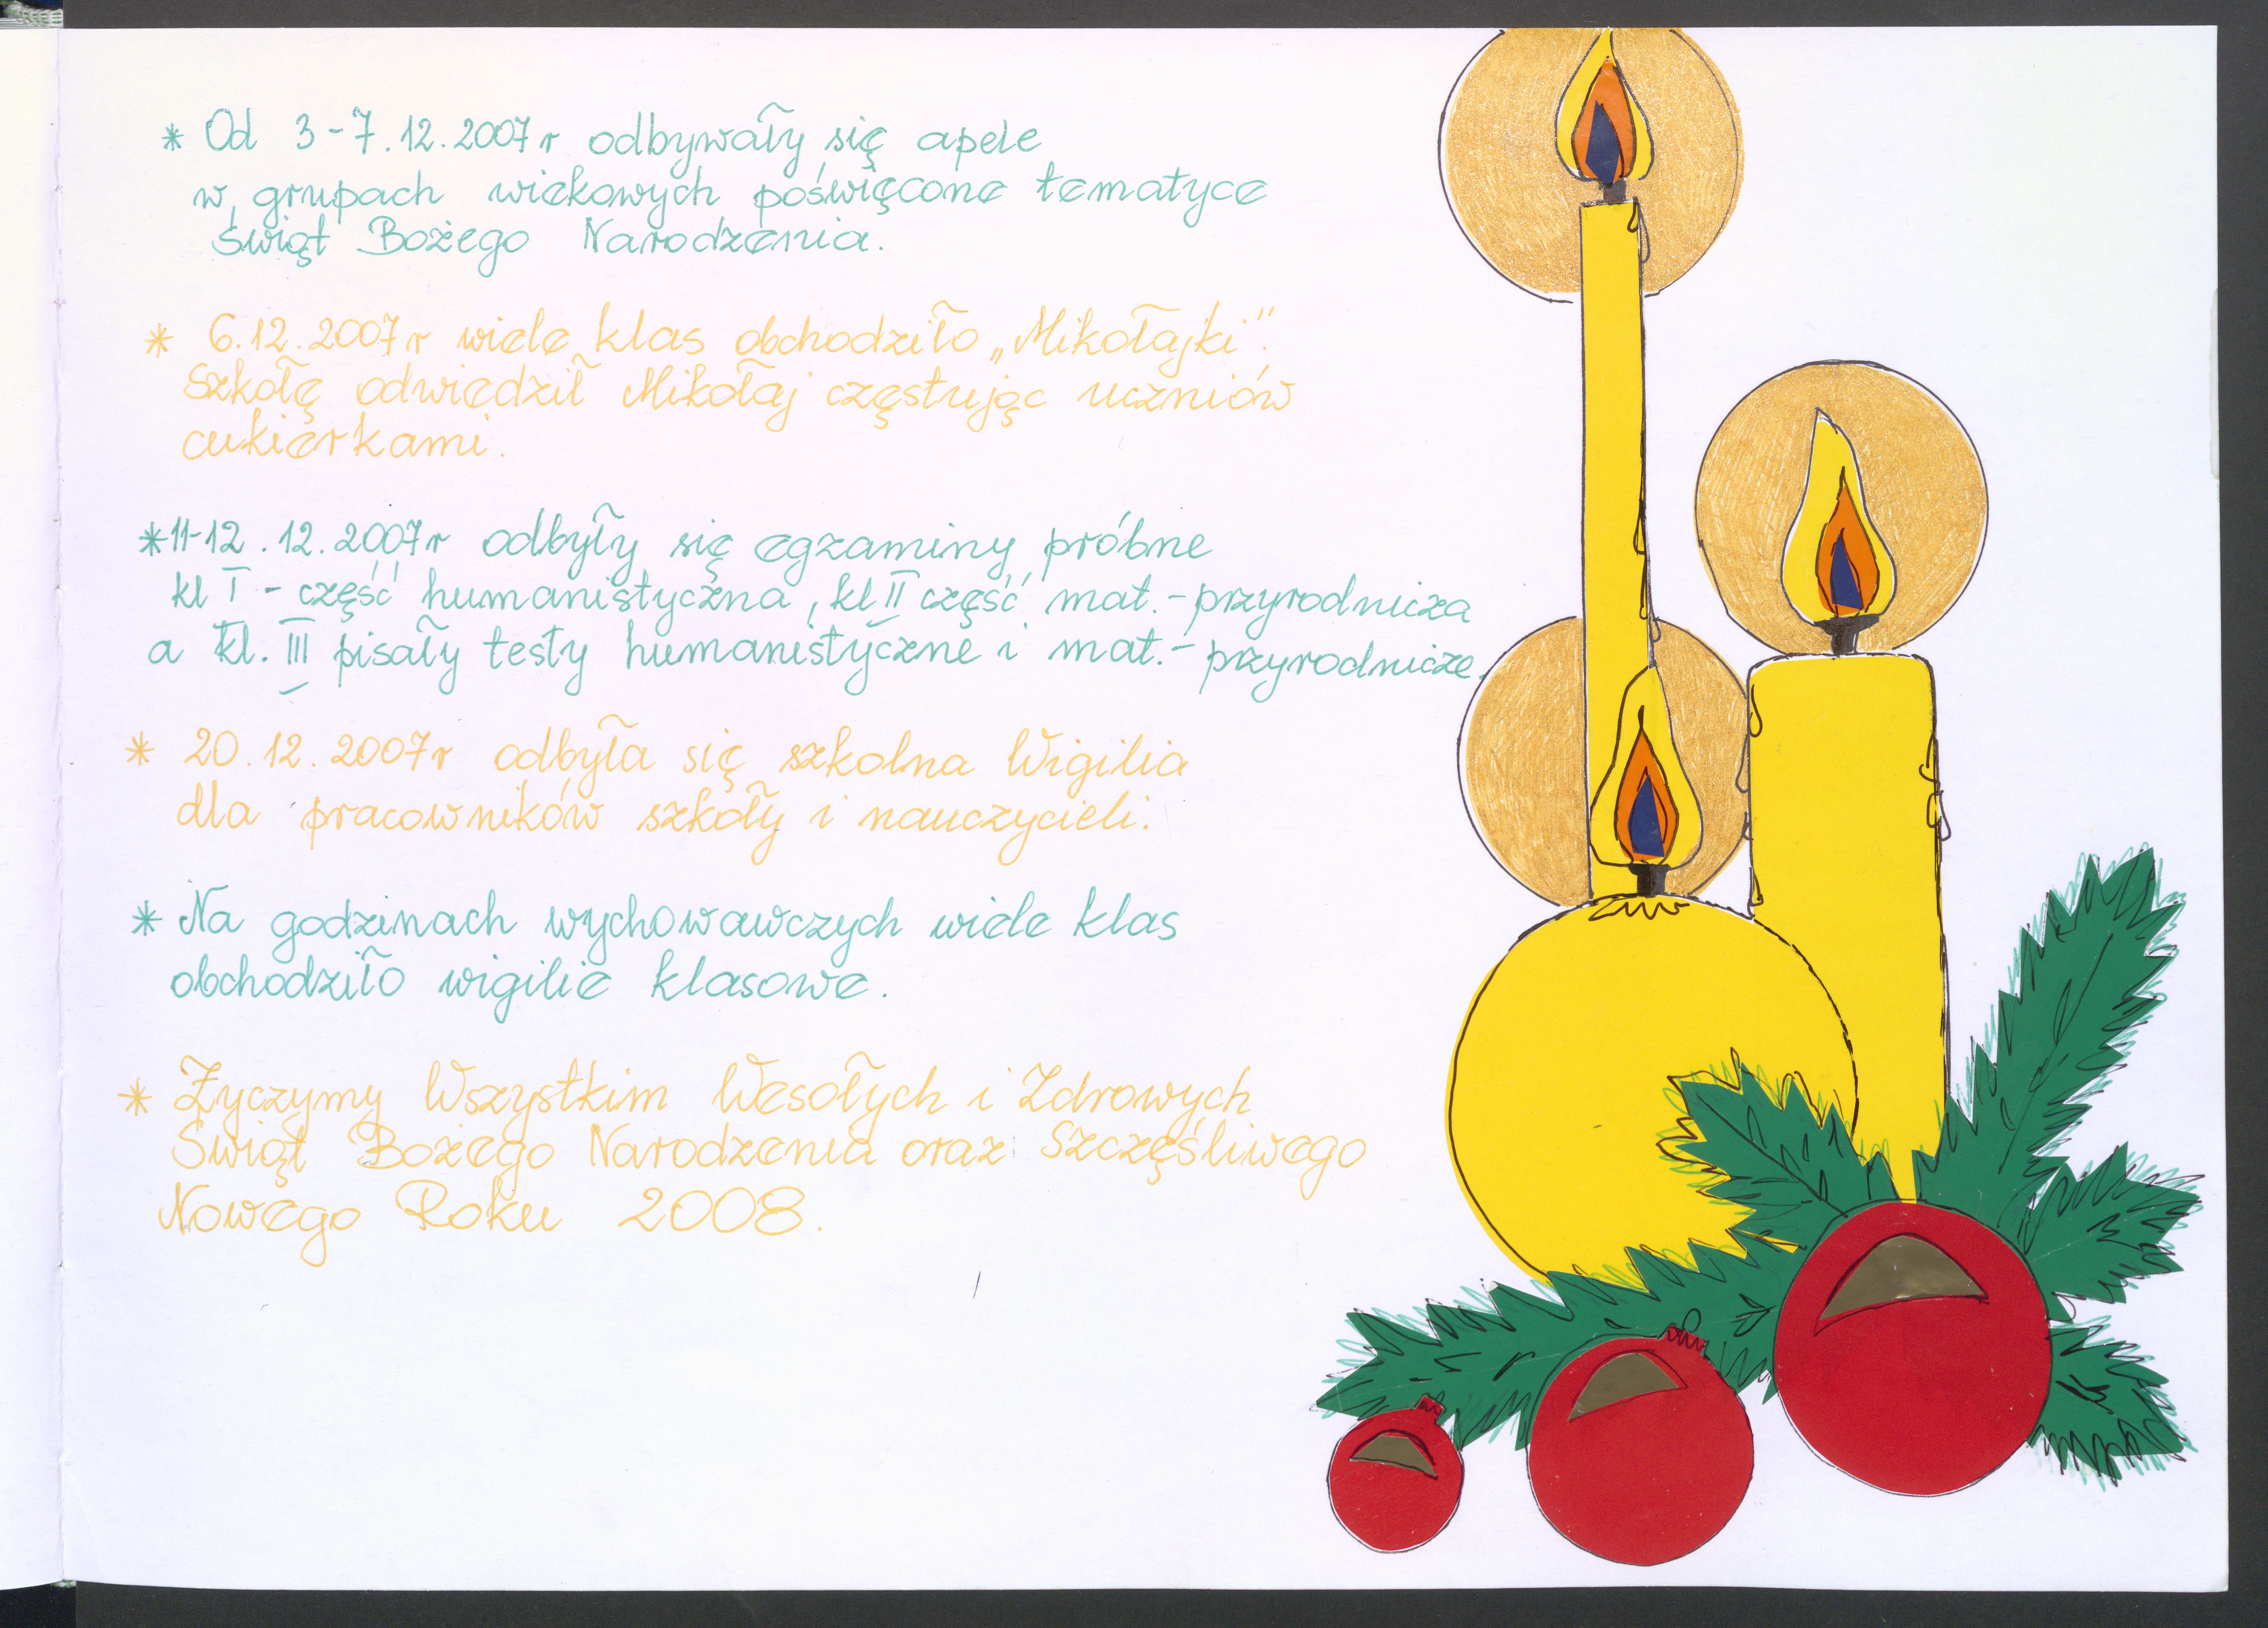 * Od 3-7.12.2007r odbywały się apele
w grupach wiekowych poświęcone tematyce
Świąt Bożego Narodzenia.
* 6.12.2007r wiele klas obchodziło „Mikołajki".
Szkołę odwiedził Mikołaj częstując uczniów
cukierkami.
* 11-12.12.2007r odbyły się egzaminy próbne
kl I - część humanistyczna, kl II część mat.-przyrodnicza
a kl. III pisały testy humanistyczne i mat.-przyrodnicze.
* 20.12.2007r odbyła się szkolna Wigilia
dla pracowników szkoły i nauczycieli.
* Na godzinach wychowawczych wiele klas
obchodziło wigilie klasowe.
* Życzymy Wszystkim Wesołych i Zdrowych
Świąt Bożego Narodzenia oraz Szczęśliwego
Nowego Roku 2008.